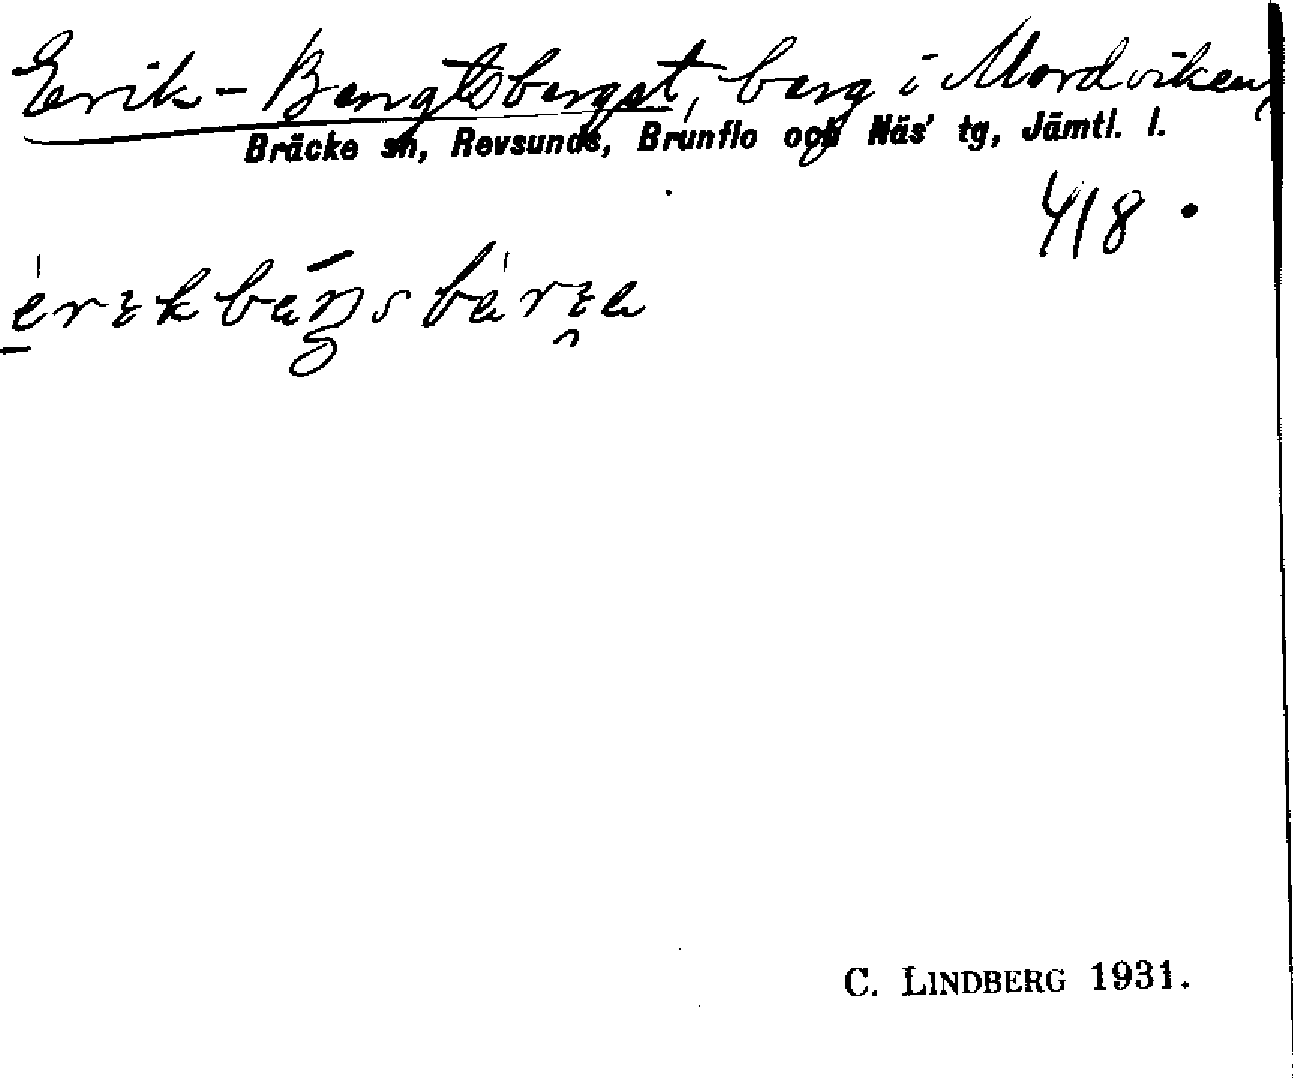 Erik-Bengtsberget, berg i Mordviken,
Bräcke sn, Revsunds, Brunflo och Näs' tg, Jämtl. l.
418.
C. LINDBERG 1931.